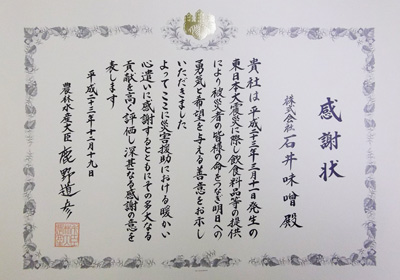 感謝状
株式会社 石井味噌 殿
貴社は平成二十三年三月十一日発生の
東日本大震災に際し飲食料品等の提供
により被災者の皆様の命をつなぎ明日への
勇気と希望を与える善意をお示し
いただきました
よってここに災害援助における暖かい
心遣いに感謝するとともにその多大なる
貢献を高く評価し深甚なる感謝の意を
表します
平成二十三年十二月十九日
農林水産大臣 鹿野道彦